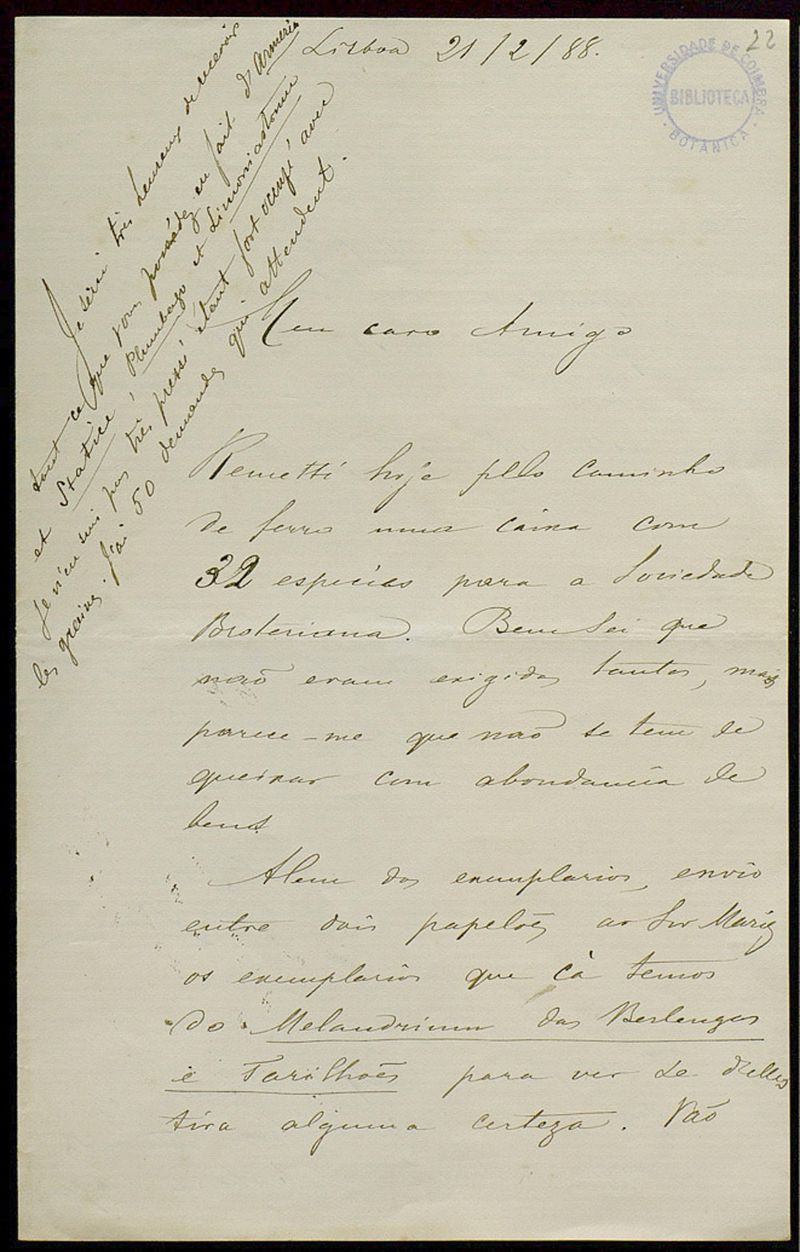 22
UNIVERSIDADE DE COIMBRA
BIBLIOTECA
BOTÂNICA
Lisboa 21/2/88.
Je serai très heureux de recevoir
tout ce que vous possédez en fait d'Armeria
et Statice, Plumbago et Limoniastrum
Je n'en suis pas très pressé étant fort occupé avec
les graines. J'ai 50 demandes qui attendent.
Meu caro Amigo
Remetti hoje pelo caminho
de ferro uma caixa com
32 especies para a Sociedade
Broteriana. Bem sei que
não eram exigidas tantas, mas
parece-me que não se tem de
queixar com abondancia de
bens.
Alem dos exemplarios, envio
entre dois papelões ao Snr Mariz
os exemplarios que cá temos
do Melandrium das Berlengas
e Farilhões para ver se d'elles
tira alguma certeza. Vão